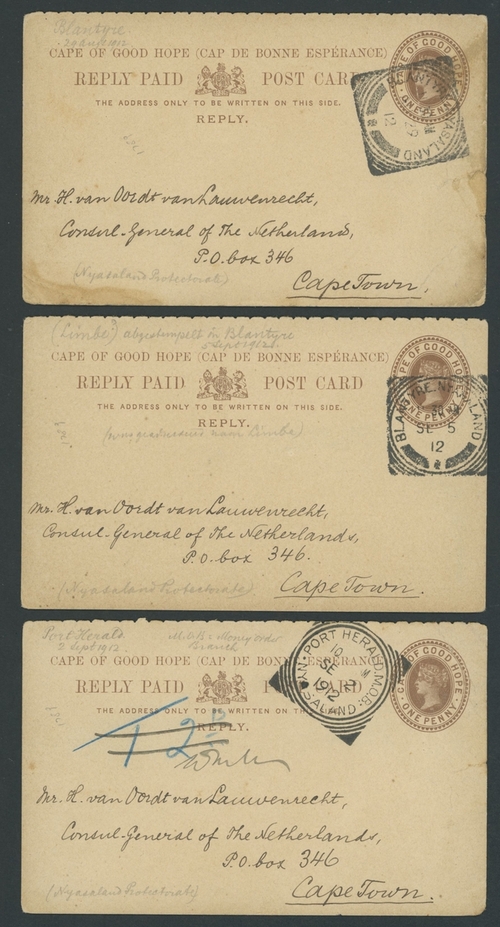 Blantyre
1912
CAPE OF GOOD HOPE (CAP DE BONNE ESPÉRANCE)
REPLY PAID POST CARD
THE ADDRESS ONLY TO BE WRITTEN ON THIS SIDE.
REPLY.
CAPE OF GOOD HOPE
ONE PENNY
12
Mr. H. van Oordt van Lauwenrecht,
Consul-General of The Netherlands,
P.O. box 346
(Nyasaland Protectorate)
Cape Town.
(Limbe?) abgestempelt in Blantyre
5 Sept 1912
CAPE OF GOOD HOPE (CAP DE BONNE ESPÉRANCE)
REPLY PAID POST CARD
THE ADDRESS ONLY TO BE WRITTEN ON THIS SIDE.
REPLY.
CAPE OF GOOD HOPE
SE 5
12
Mr. H. van Oordt van Lauwenrecht,
Consul-General of The Netherlands,
P.O. box 346.
(Nyasaland Protectorate)
Cape Town.
Port Herald
2 Sept 1912.
M.O.B = Money Order
Branch
CAPE OF GOOD HOPE (CAP DE BONNE
REPLY PAID CARD
THE ADDRESS ONLY TO BE WRITTEN ON THIS SIDE.
REPLY.
PORT HERALD M.O.B.
NYASALAND
SE 2
1912
CAPE OF GOOD HOPE
ONE PENNY
T 2D
Mr. H. van Oordt van Lauwenrecht,
Consul-General of The Netherlands,
P.O. box 346
(Nyasaland Protectorate)
Cape Town.